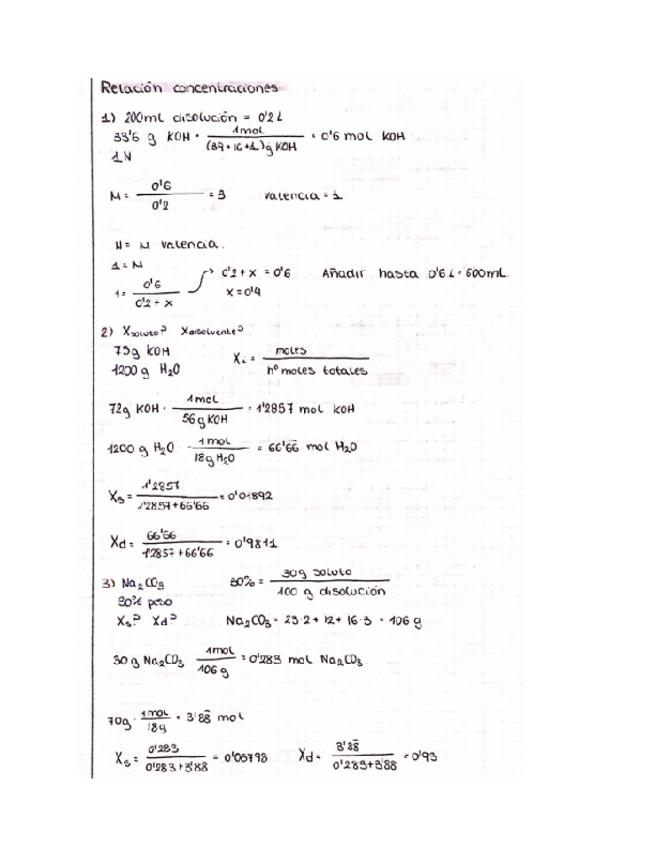 Relación concentraciones
1) 200mL disolución = 0'2 L
33'6 g KOH · 1mol / (39+16+1)g KOH = 0'6 mol KOH
1N
M = 0'6 / 0'2 = 3 valencia = 1
N = M valencia.
1 = M
1 = 0'6 / 0'2 + x → 0'2 + x = 0'6 x = 0'4 Añadir hasta 0'6 L = 600mL
2) Xsoluto? Xdisolvente?
g KOH Xi = moles / nº moles totales
1200 g H2O
72g KOH · 1mol / 56 g KOH = 1'2857 mol KOH
1200 g H2O 1 mol / 18g H2O = 66'66 mol H2O
Xs = 1'2857 / 1'2857+66'66 = 0'01892
Xd = 66'66 / 1'2857+66'66 = 0'9811
3) Na2CO3 30% = 30g soluto / 100 g disolución
30% peso
Xs? Xd? Na2CO3 = 23·2 + 12 + 16·3 = 106 g
30 g Na2CO3 1mol / 106 g = 0'283 mol Na2CO3
70g · 1mol / 18g = 3'88 mol
Xs = 0'283 / 0'283+3'88 = 0'06798 Xd = 3'88 / 0'283+3'88 = 0'93